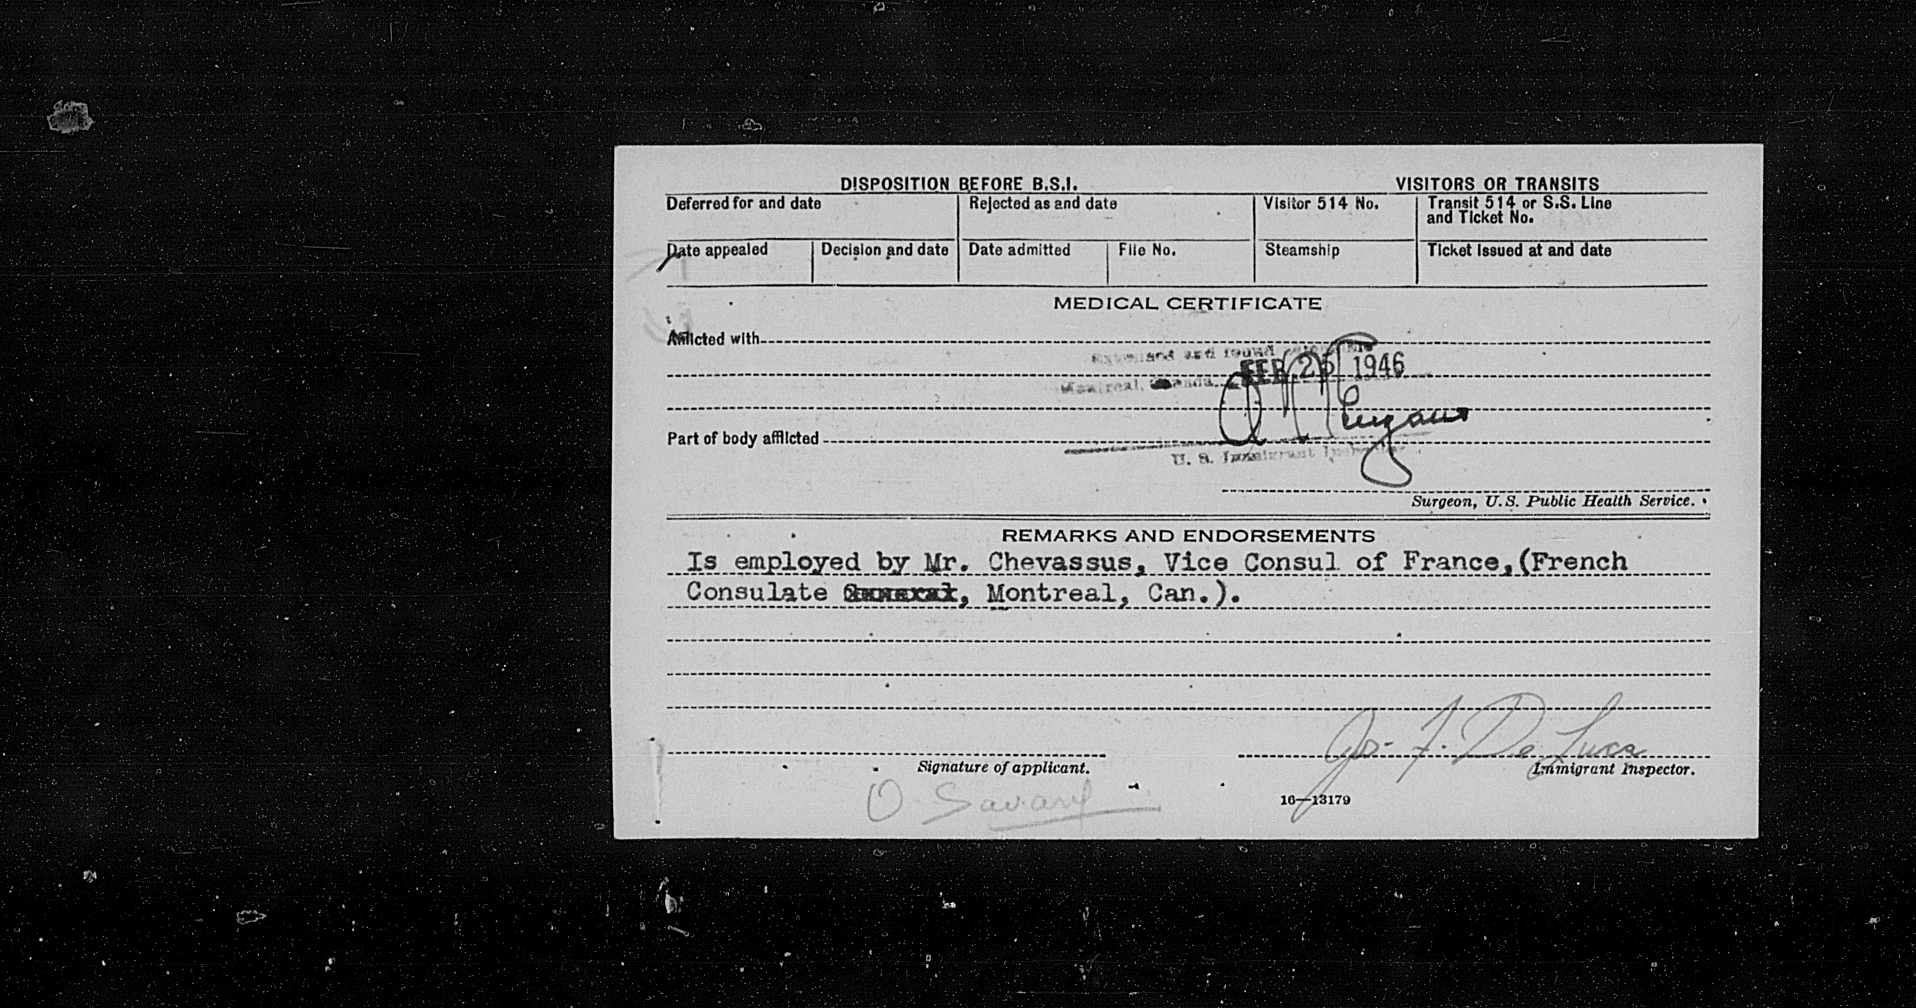 DISPOSITION BEFORE B.S.I.
VISITORS OR TRANSITS
Deferred for and date
Rejected as and date
Visitor 514 No.
Transit 514 or S.S. Line
and Ticket No.
Date appealed
Decision and date
Date admitted
File No.
Steamship
Ticket issued at and date
MEDICAL CERTIFICATE
Afflicted with
and found
FEB 25 1946
Montreal, Canada
Part of body afflicted
U. S. Immigrant Inspector
Surgeon, U.S. Public Health Service.
REMARKS AND ENDORSEMENTS
Is employed by Mr. Chevassus, Vice Consul of France,(French
Consulate General, Montreal, Can.).
Jos. F. De Luca
Signature of applicant.
Immigrant Inspector.
O Savard
16—13179